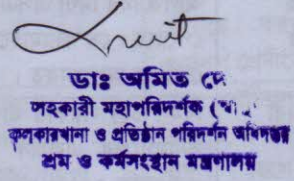 ডাঃ অমিত দে
সহকারী মহাপরিদর্শক
কলকারখানা ও প্রতিষ্ঠান পরিদর্শন অধিদপ্তর
শ্রম ও কর্মসংস্থান মন্ত্রণালয়